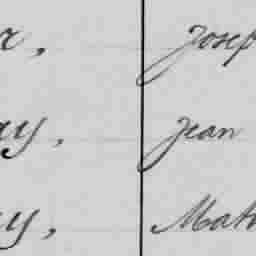 r, Josep
ay, Jean
y, Math